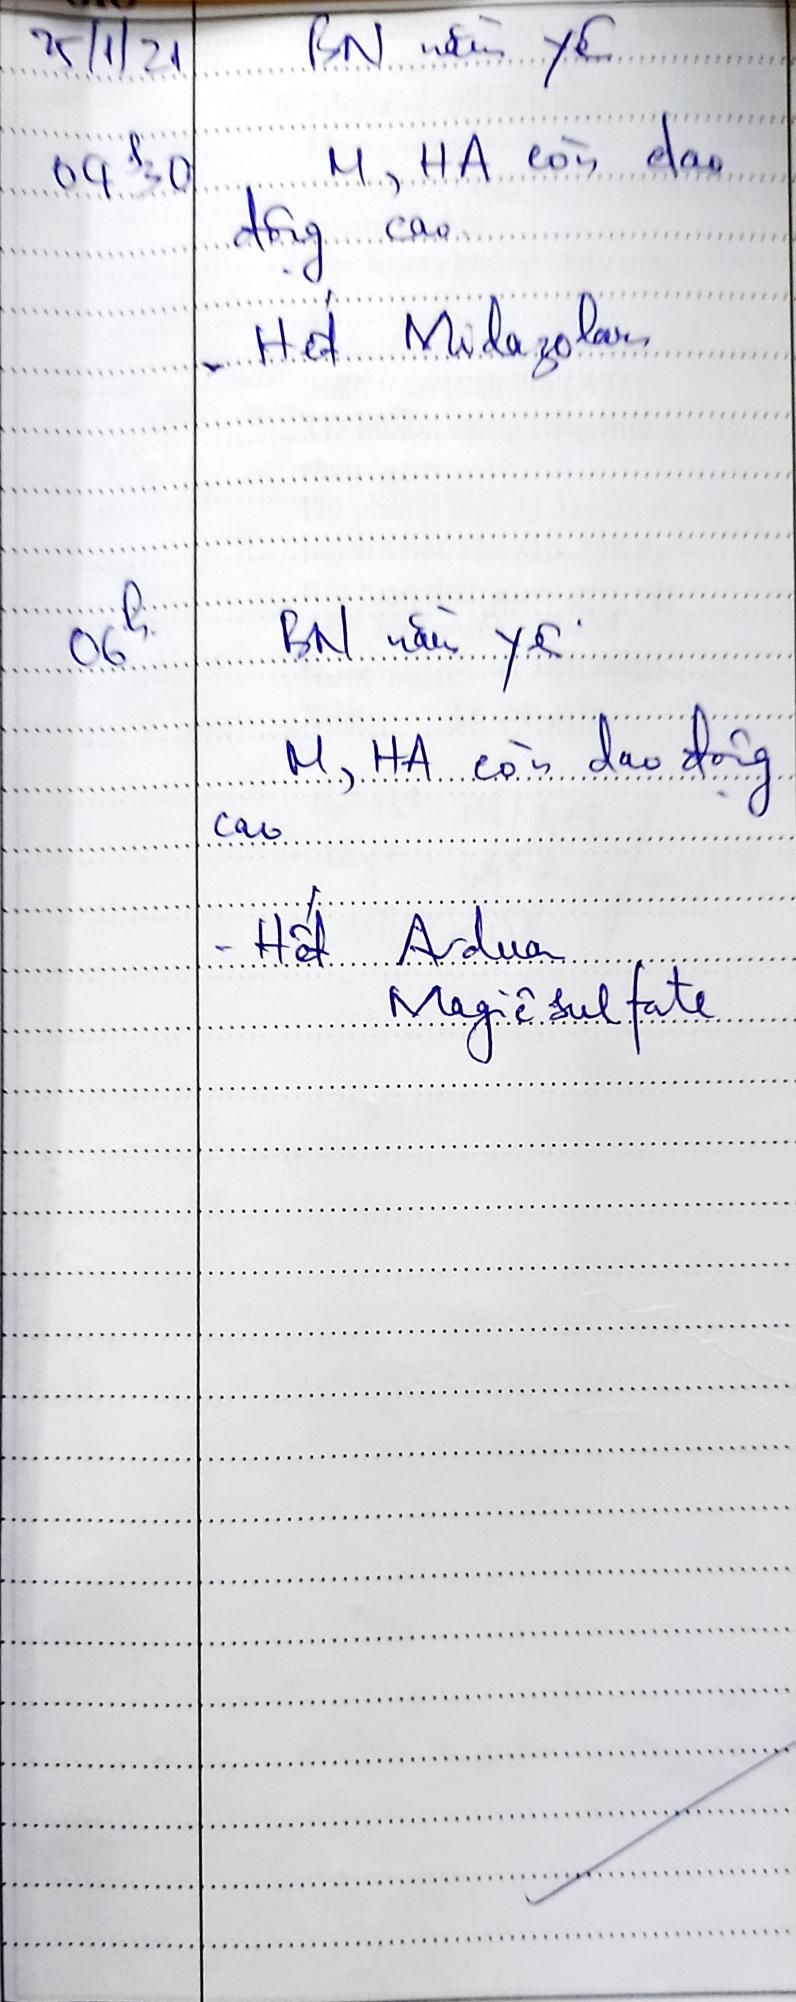 25/1/21 BN nằm yên
04h30 M, HA còn dao
động cao
- Hết Midazolam
06h BN nằm yên
M, HA còn dao động
cao
- Hết Arduan
Magiêsulfate